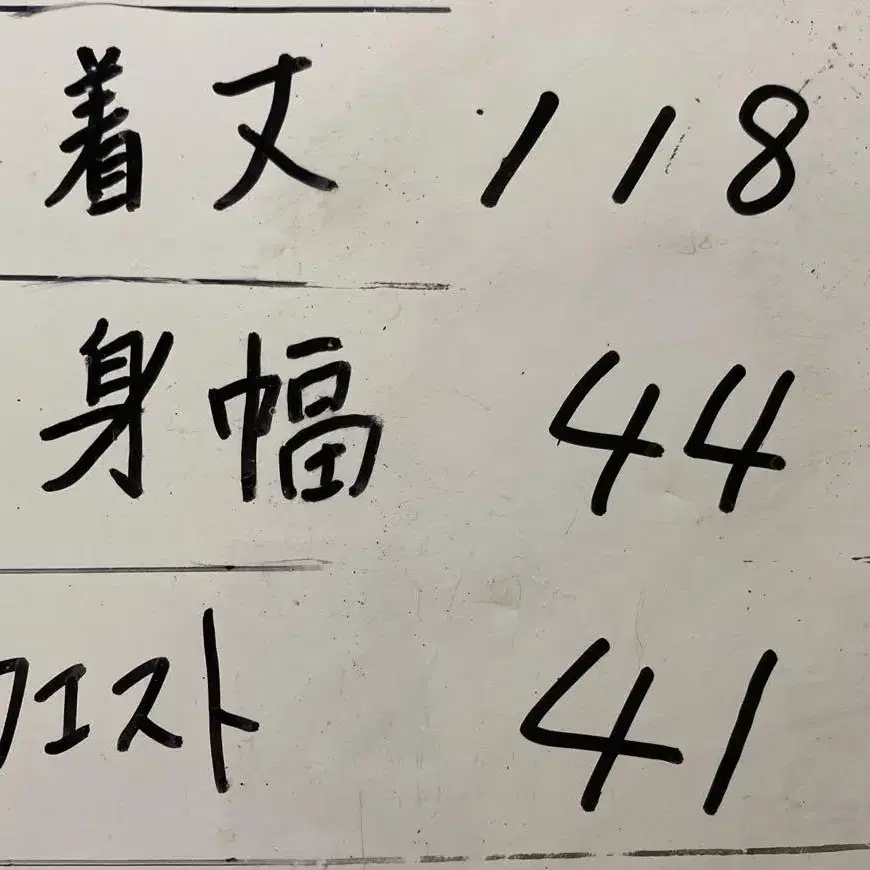 着丈 118
身幅 44
ウエスト 41